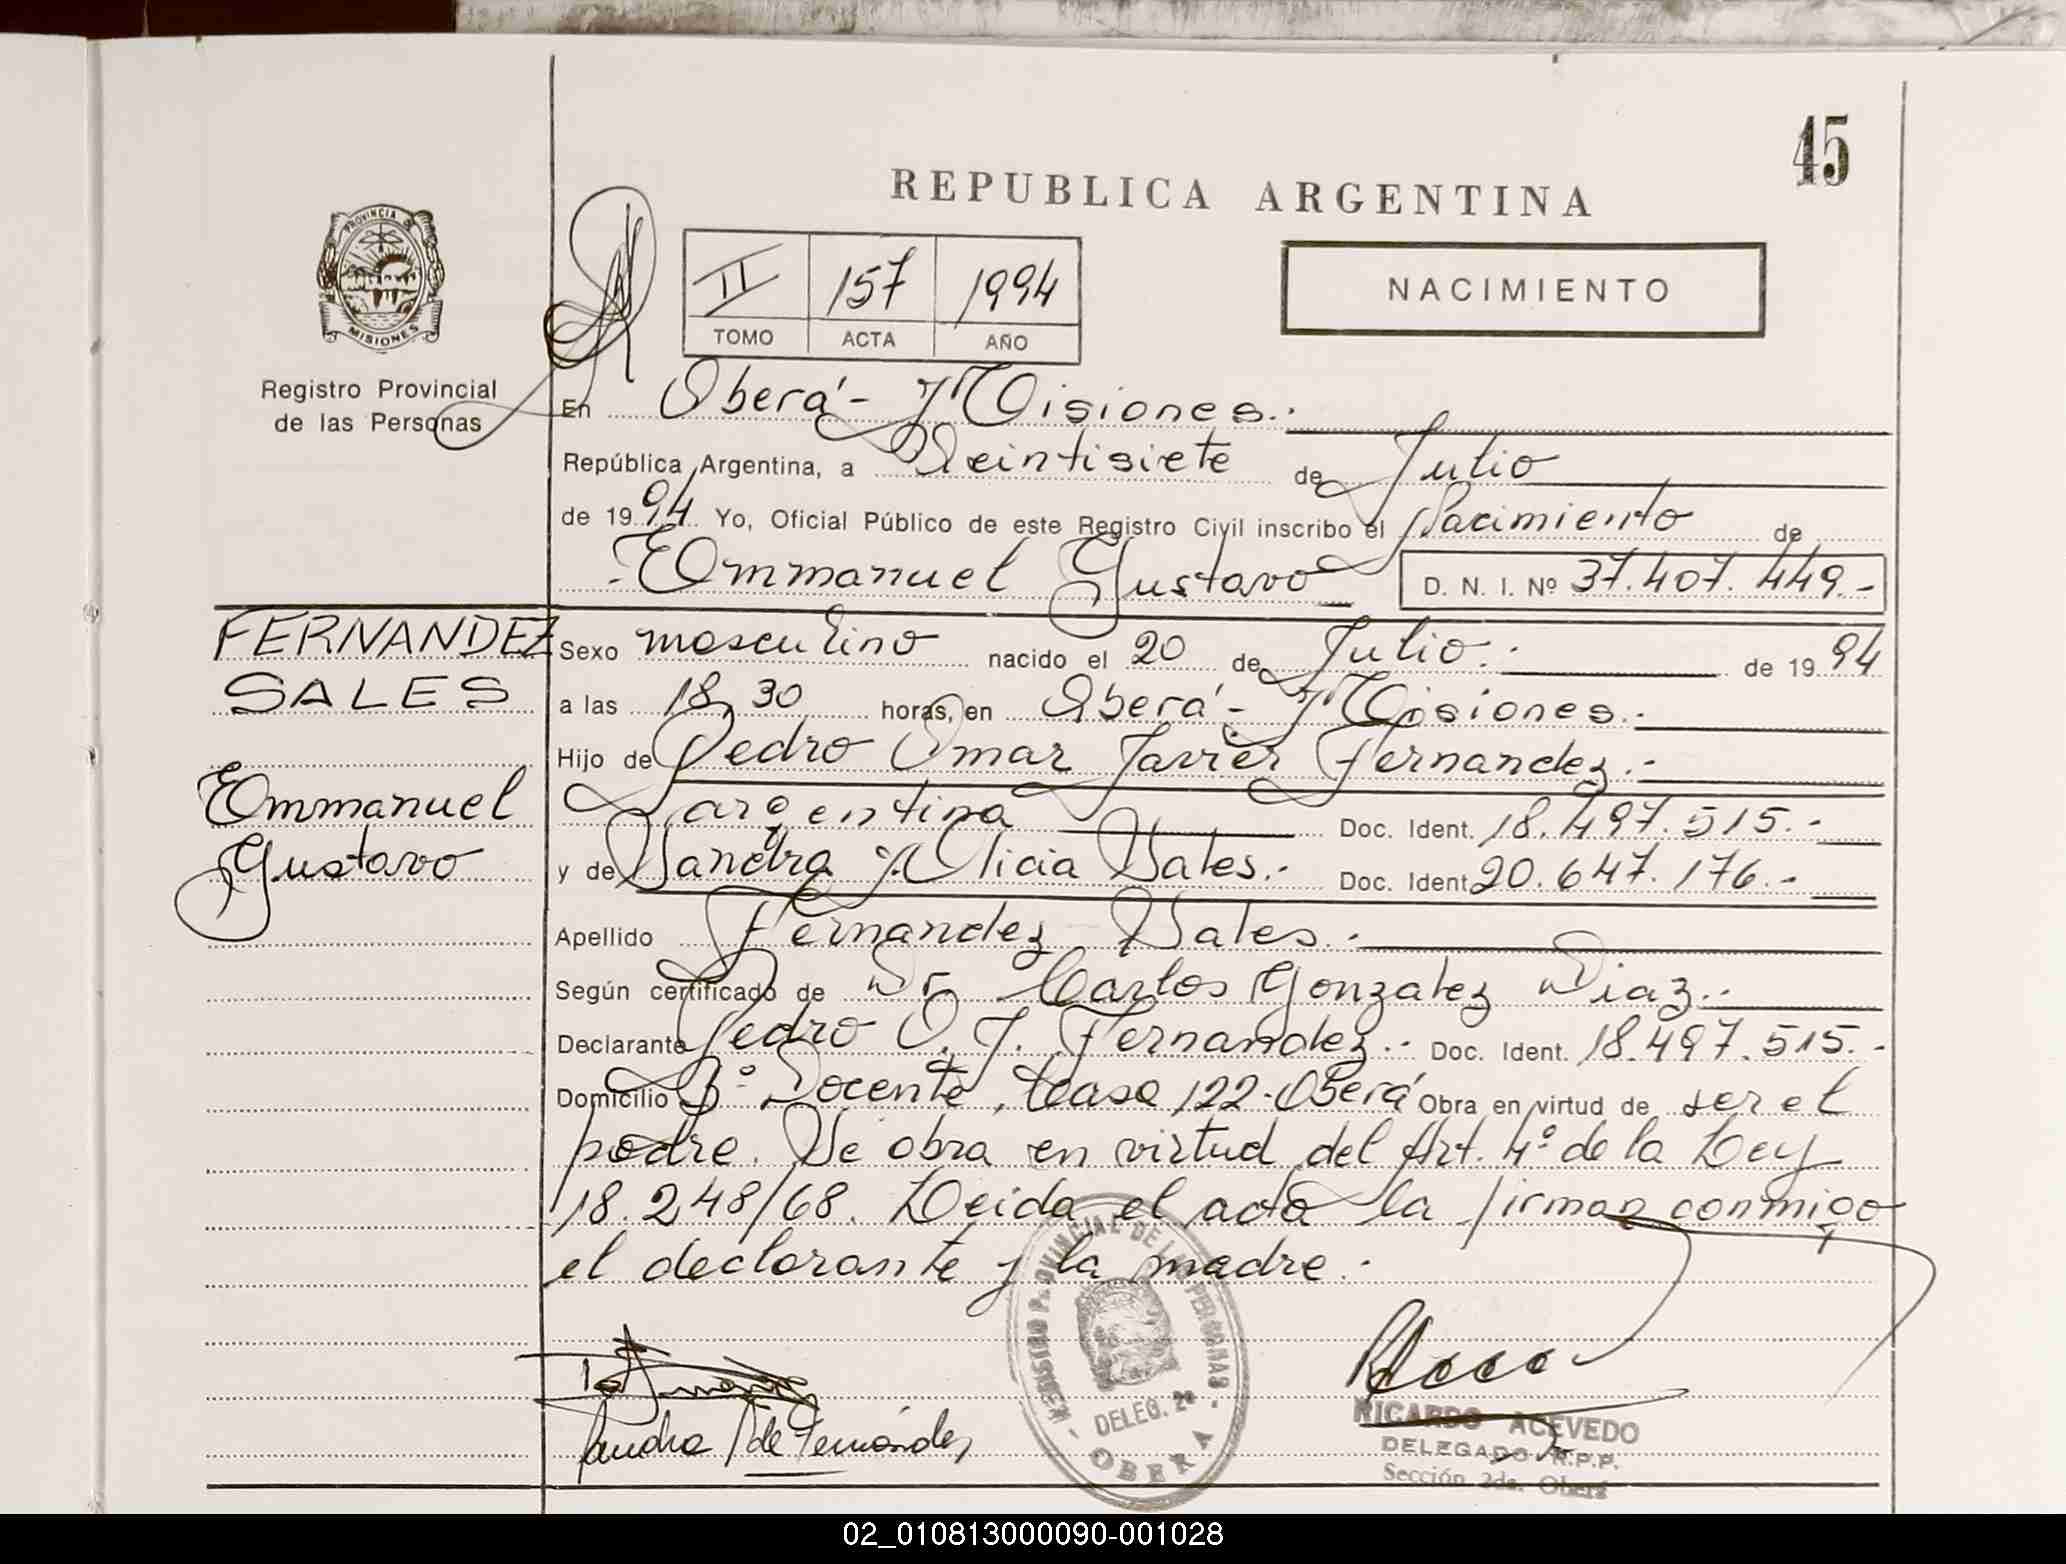 45
REPUBLICA ARGENTINA
PROVINCIA DE
MISIONES
Registro Provincial
de las Personas
II 157 1994
TOMO ACTA AÑO
NACIMIENTO
En Oberá - Misiones.-
República Argentina, a Veintisiete de Julio
de 1994 Yo, Oficial Público de este Registro Civil inscribo el Nacimiento de
Emmanuel Gustavo D. N. I. Nº 37.407.449.-
FERNANDEZ
SALES
Emmanuel
Gustavo
Sexo masculino nacido el 20 de Julio.- de 1994
a las 18,30 horas, en Oberá - Misiones.-
Hijo de Pedro Omar Javier Fernandez.-
argentina Doc. Ident. 18.497.515.-
y de Sandra Alicia Sales.- Doc. Ident. 20.647.176.-
Apellido Fernandez Sales.-
Según certificado de Dr. Carlos Gonzalez Diaz.-
Declarante Pedro O. J. Fernandez.- Doc. Ident. 18.497.515.-
Domicilio Bº Docente, Casa 122-Oberá Obra en virtud de ser el
padre. Se obra en virtud del Art. 4º de la Ley
18.248/68. Leida el acta la firman conmigo
el declarante y la madre.-
REGISTRO PROVINCIAL DE LAS PERSONAS
DELEG. 2ª
- OBERA -
Sandra S de Fernández
RICARDO ACEVEDO
DELEGADO R.P.P.
Sección 2da. Oberá
02_010813000090-001028